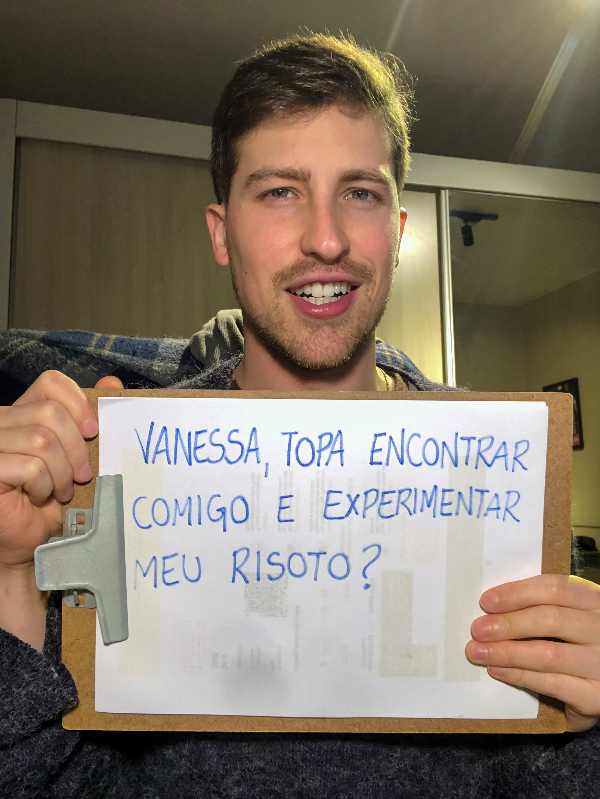 VANESSA, TOPA ENCONTRAR
COMIGO E EXPERIMENTAR
MEU RISOTO?